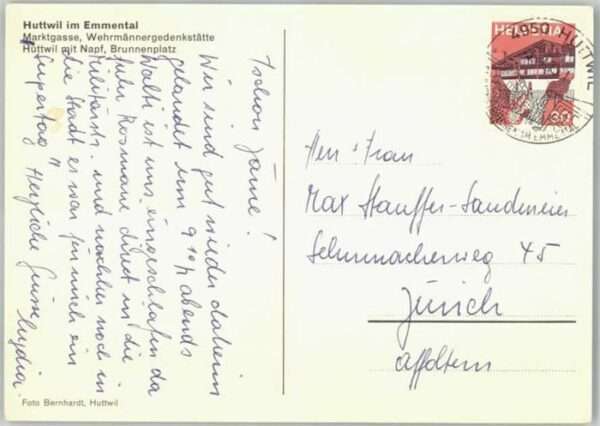 Huttwil im Emmental
Marktgasse, Wehrmännergedenkstätte
Huttwil mit Napf, Brunnenplatz
Tschou zäme!
Wir sind gut wieder daheim
gelandet um 9 10h abends
Walti ist uns eingeschlafen da
fuhr Rosmarie direkt in die
Militärstr. und nachher noch in
die Stadt es war für mich ein
"Supertag" Herzliche Grüsse Lydia
Foto Bernhardt, Huttwil
HELVETIA
4950 HUTTWIL
IM EMMENTAL
30
Herr + Frau
Max Stauffer-Sandmeier
Schumacherweg 45
Zürich
Affoltern